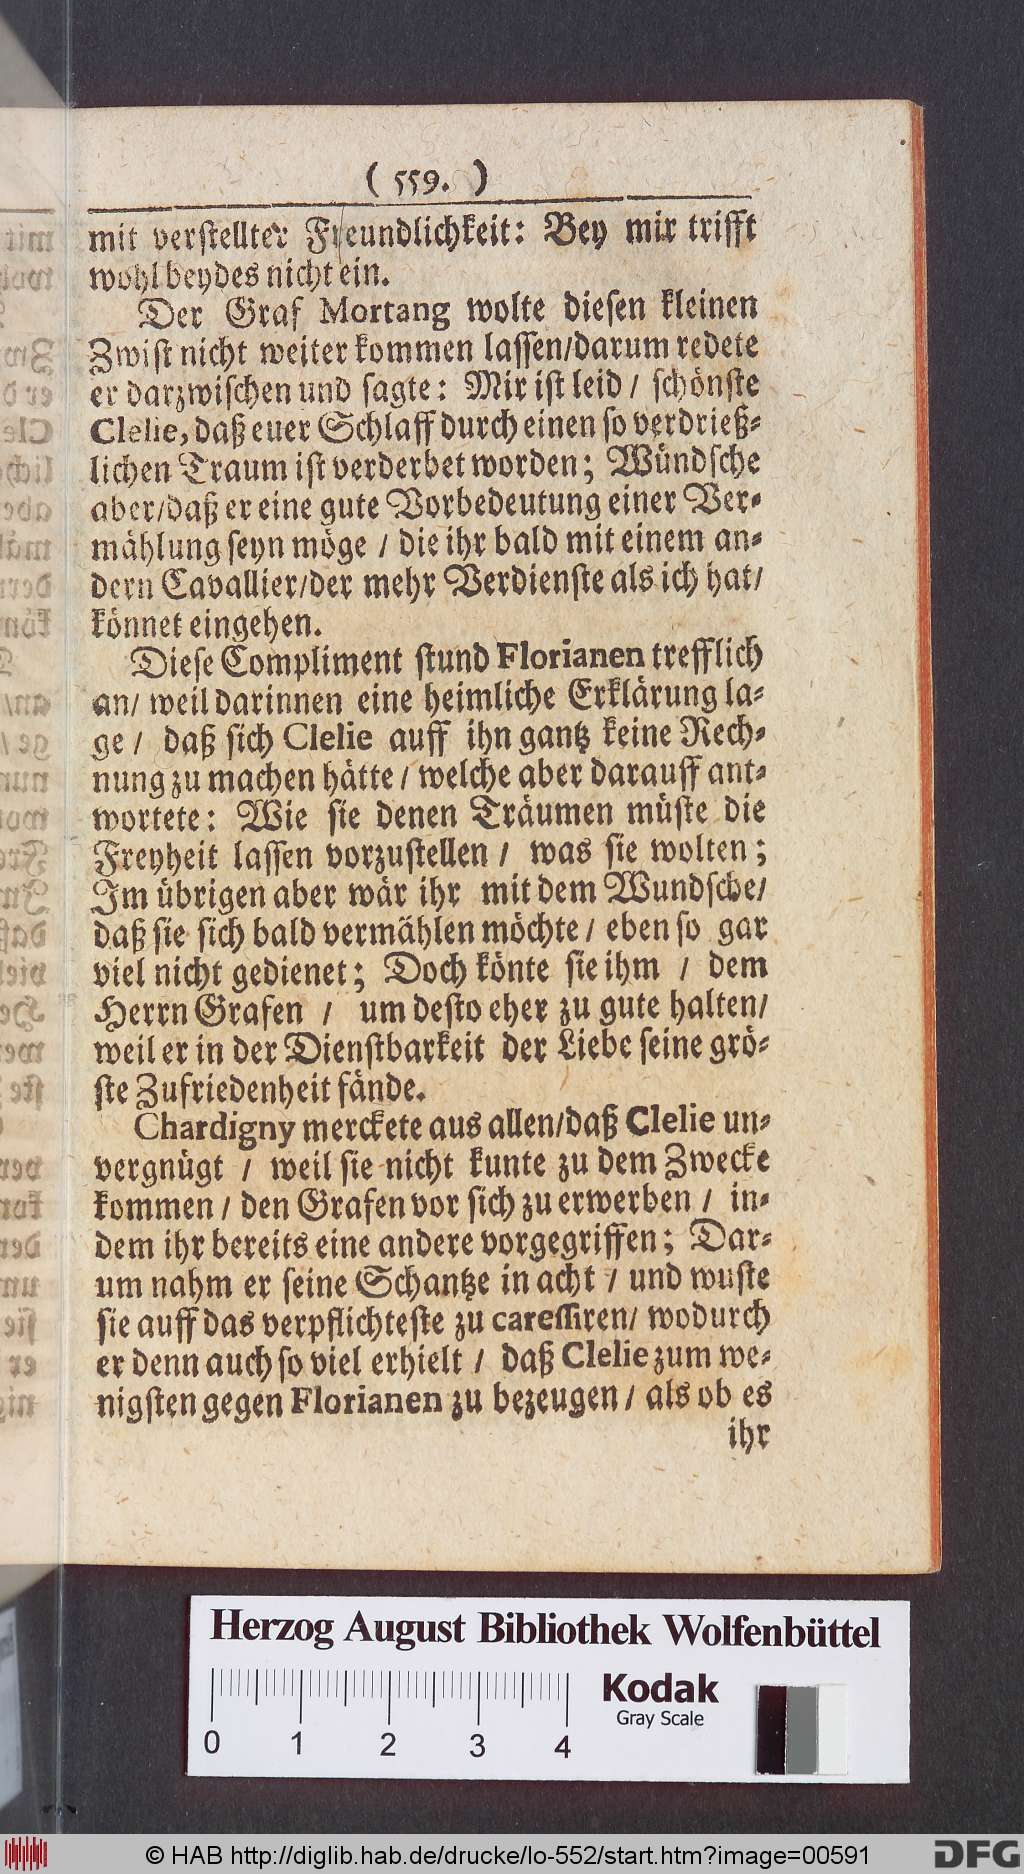 ( 559. )
mit verstellter Freundlichkeit: Bey mir trifft
wohl beydes nicht ein.
Der Graf Mortang wolte diesen kleinen
Zwist nicht weiter kommen lassen/darum redete
er darzwischen und sagte: Mir ist leid / schönste
Clelie, daß euer Schlaff durch einen so verdrieß-
lichen Traum ist verderbet worden; Wündsche
aber/daß er eine gute Vorbedeutung einer Ver-
mählung seyn möge / die ihr bald mit einem an-
dern Cavallier/der mehr Verdienste als ich hat/
könnet eingehen.
Diese Compliment stund Florianen trefflich
an/ weil darinnen eine heimliche Erklärung la-
ge / daß sich Clelie auff ihn gantz keine Rech-
nung zu machen hätte / welche aber darauff ant-
wortete: Wie sie denen Träumen müste die
Freyheit lassen vorzustellen / was sie wolten;
Im übrigen aber wär ihr mit dem Wundsche/
daß sie sich bald vermählen möchte / eben so gar
viel nicht gedienet; Doch könte sie ihm / dem
Herrn Grafen / um desto eher zu gute halten/
weil er in der Dienstbarkeit der Liebe seine grö-
ste Zufriedenheit fände.
Chardigny merckete aus allen/daß Clelie un-
vergnügt / weil sie nicht kunte zu dem Zwecke
kommen / den Grafen vor sich zu erwerben / in-
dem ihr bereits eine andere vorgegriffen; Dar-
um nahm er seine Schantze in acht / und wuste
sie auff das verpflichteste zu caressiren/ wodurch
er denn auch so viel erhielt / daß Clelie zum we-
nigsten gegen Florianen zu bezeugen / als ob es
ihr
Herzog August Bibliothek Wolfenbüttel
Kodak
Gray Scale
0 1 2 3 4
© HAB http://diglib.hab.de/drucke/lo-552/start.htm?image=00591
DFG